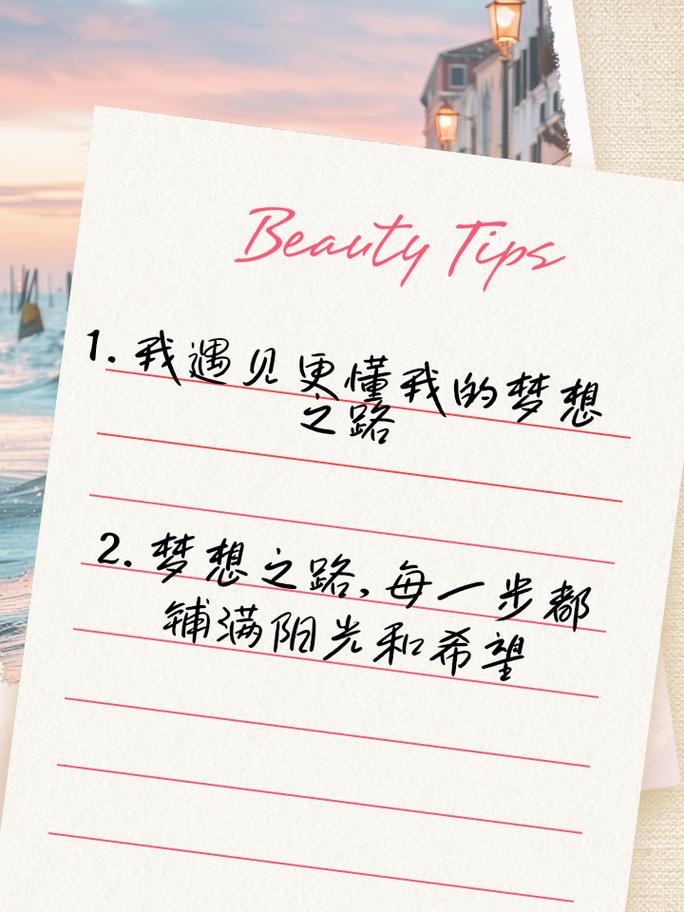 Beauty Tips
1. 我遇见更懂我的梦想
之路
2. 梦想之路,每一步都
铺满阳光和希望